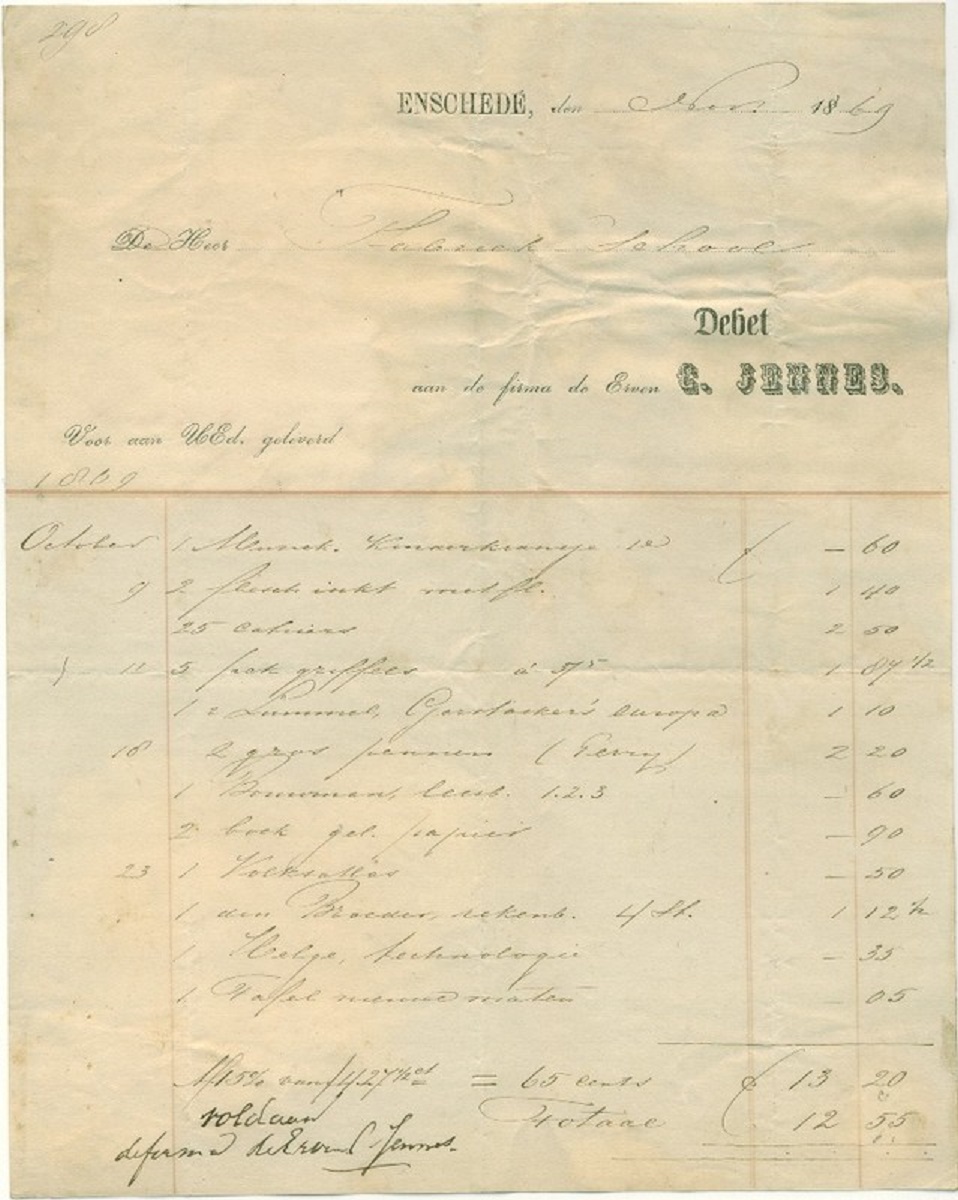 298
ENSCHEDÉ, den Nov. 1869
De Heer Fabriek School
Debet
aan de firma de Erven G. JENNES.
Voor aan UEd. geleverd
1869
October 1 Munck. 1e ƒ — 60
9 2 flesch inkt met fl. 1 40
25 cahiers 2 50
11 5 pak griffels à 37⁵ 1 87 1/2
1 Lummel, Gerstäcker's Europa 1 10
18 2 gros pennen (Perry) 2 20
1 Bouwman, leesb. 1.2.3 — 60
2 boek gel. papier — 90
23 1 Volksatlas — 50
1 den Broeder, rekenb. 4 st. 1 12 1/2
1 Helge, technologie — 35
1 Tafel nieuwe maten — 05
Af 15% van ƒ 4.27 1/2 ct = 65 cents ƒ 13 20
voldaan Totaal 12 55
de firma de Erven G Jennes.